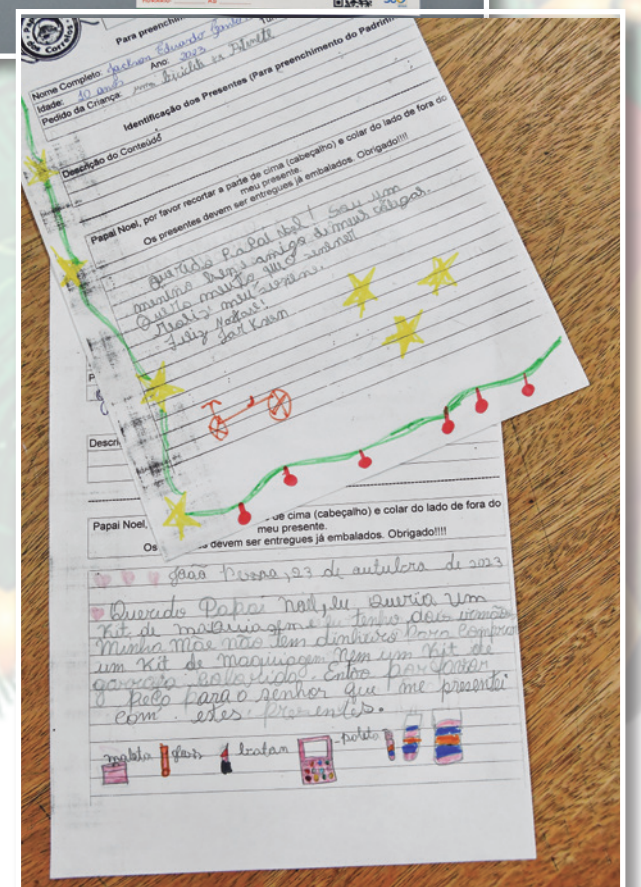 Papai
dos Correios
Para preenchim
Nome Completo: Jackson Eduardo
Idade: 10 anos Ano: 2023
Pedido da Criança: uma bicicleta
Identificação dos Presentes (Para preenchimento do Padrinh
Descrição do Conteúdo
Papai Noel, por favor recortar a parte de cima (cabeçalho) e colar do lado de fora do
meu presente.
Os presentes devem ser entregues já embalados. Obrigado!!!!
querido Papai Noel! Sou um
menino bem amigo de meus colegas.
Quero muito que o senhor
realizi meu
Feliz Natal!
Jackson
Descri
Papai Noel, de cima (cabeçalho) e colar do lado de fora do
meu presente.
Os devem ser entregues já embalados. Obrigado!!!!
João Pessoa, 23 de outubro de 2023
Querido Papai Noel, eu queria um
Kit de maquiagem e eu tenho dois irmãos
Minha Mãe não tem dinheiro Para Comprar
um Kit de maquiagem Nem um Kit de
garrafa Colorida. Então por favor
peço Para o senhor que me presentei
com estes Presentes.
maleta gloss batan paleta